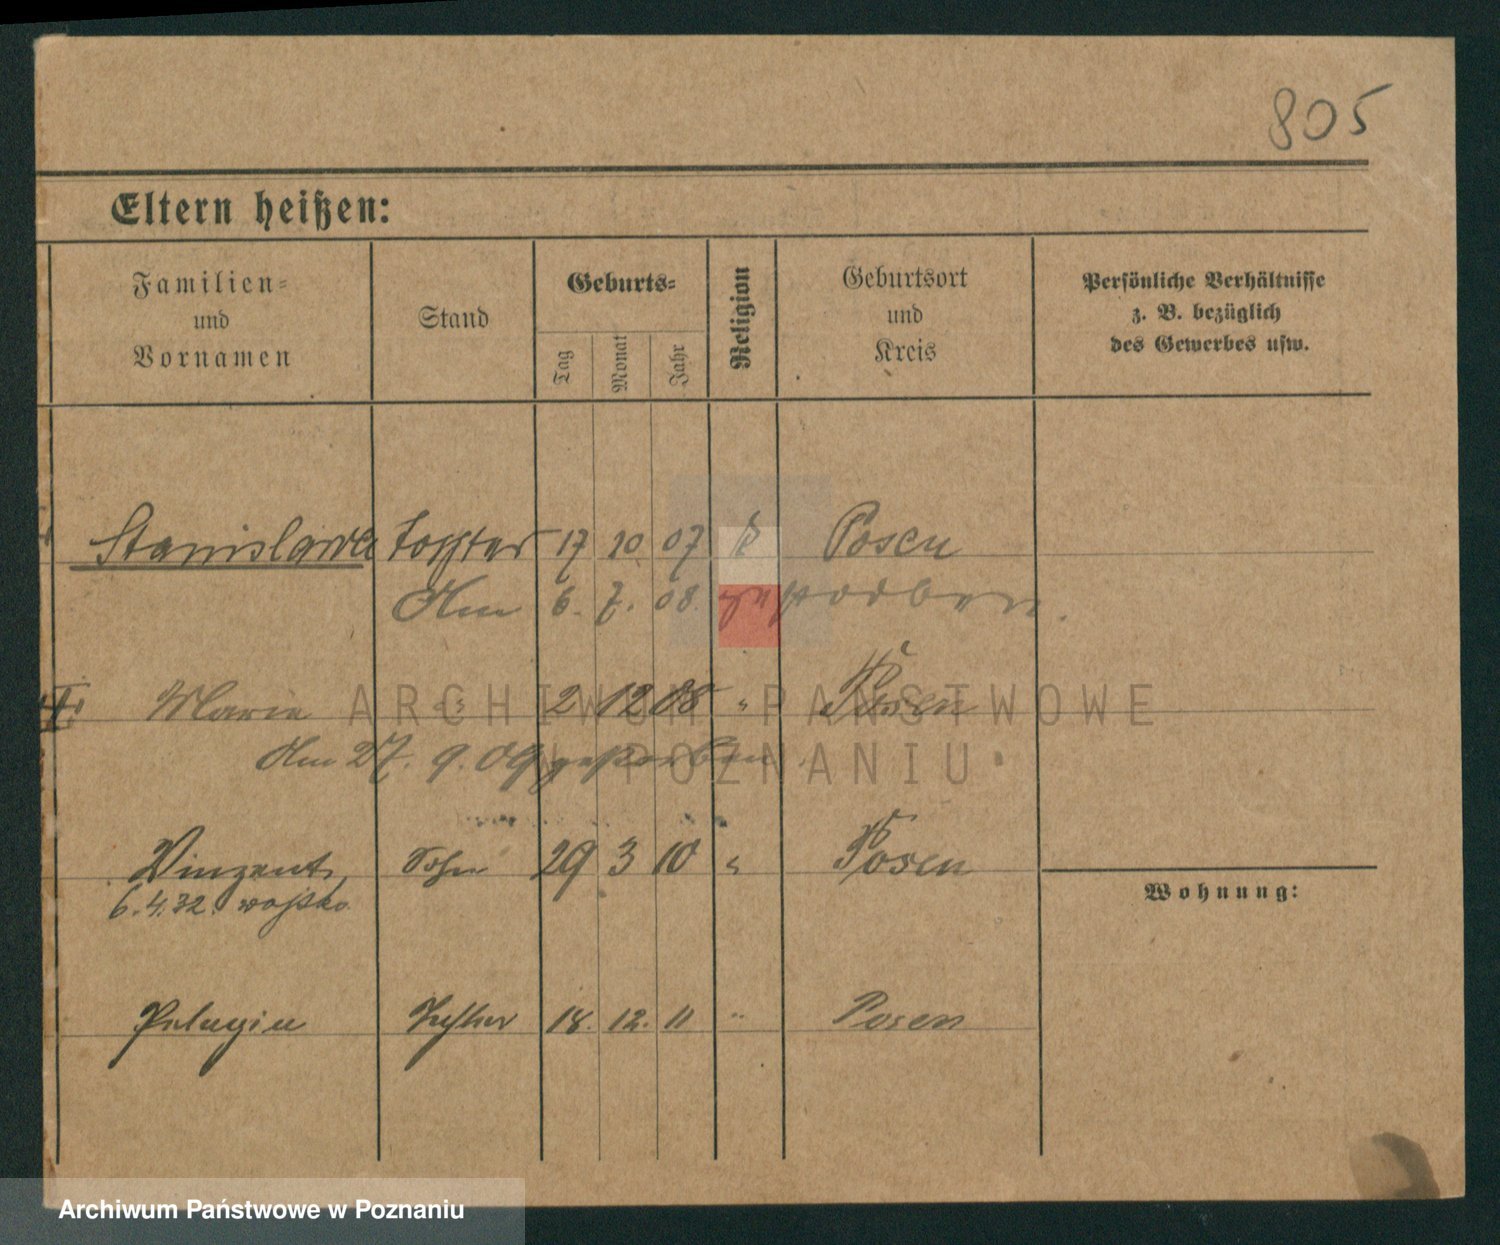 805
Eltern heißen:
Familien=
und
Vornamen
Stand
Geburts=
Tag
Monat
Jahr
Religion
Geburtsort
und
Kreis
Persönliche Verhältnisse
z. B. bezüglich
des Gewerbes usw.
Stanislawa Tochter 17 10 07 k Posen
Am 6. 7. 08. gestorben.
Marie " 2 12 08 " Posen
Am 27. 9. 09 gestorben.
Vinzent, Sohn 29 3 10 " Posen
6.4.32. wojsko
Wohnung:
Pelagia Tochter 18. 12. 11 " Posen
ARCHIWUM PAŃSTWOWE
W POZNANIU
Archiwum Państwowe w Poznaniu